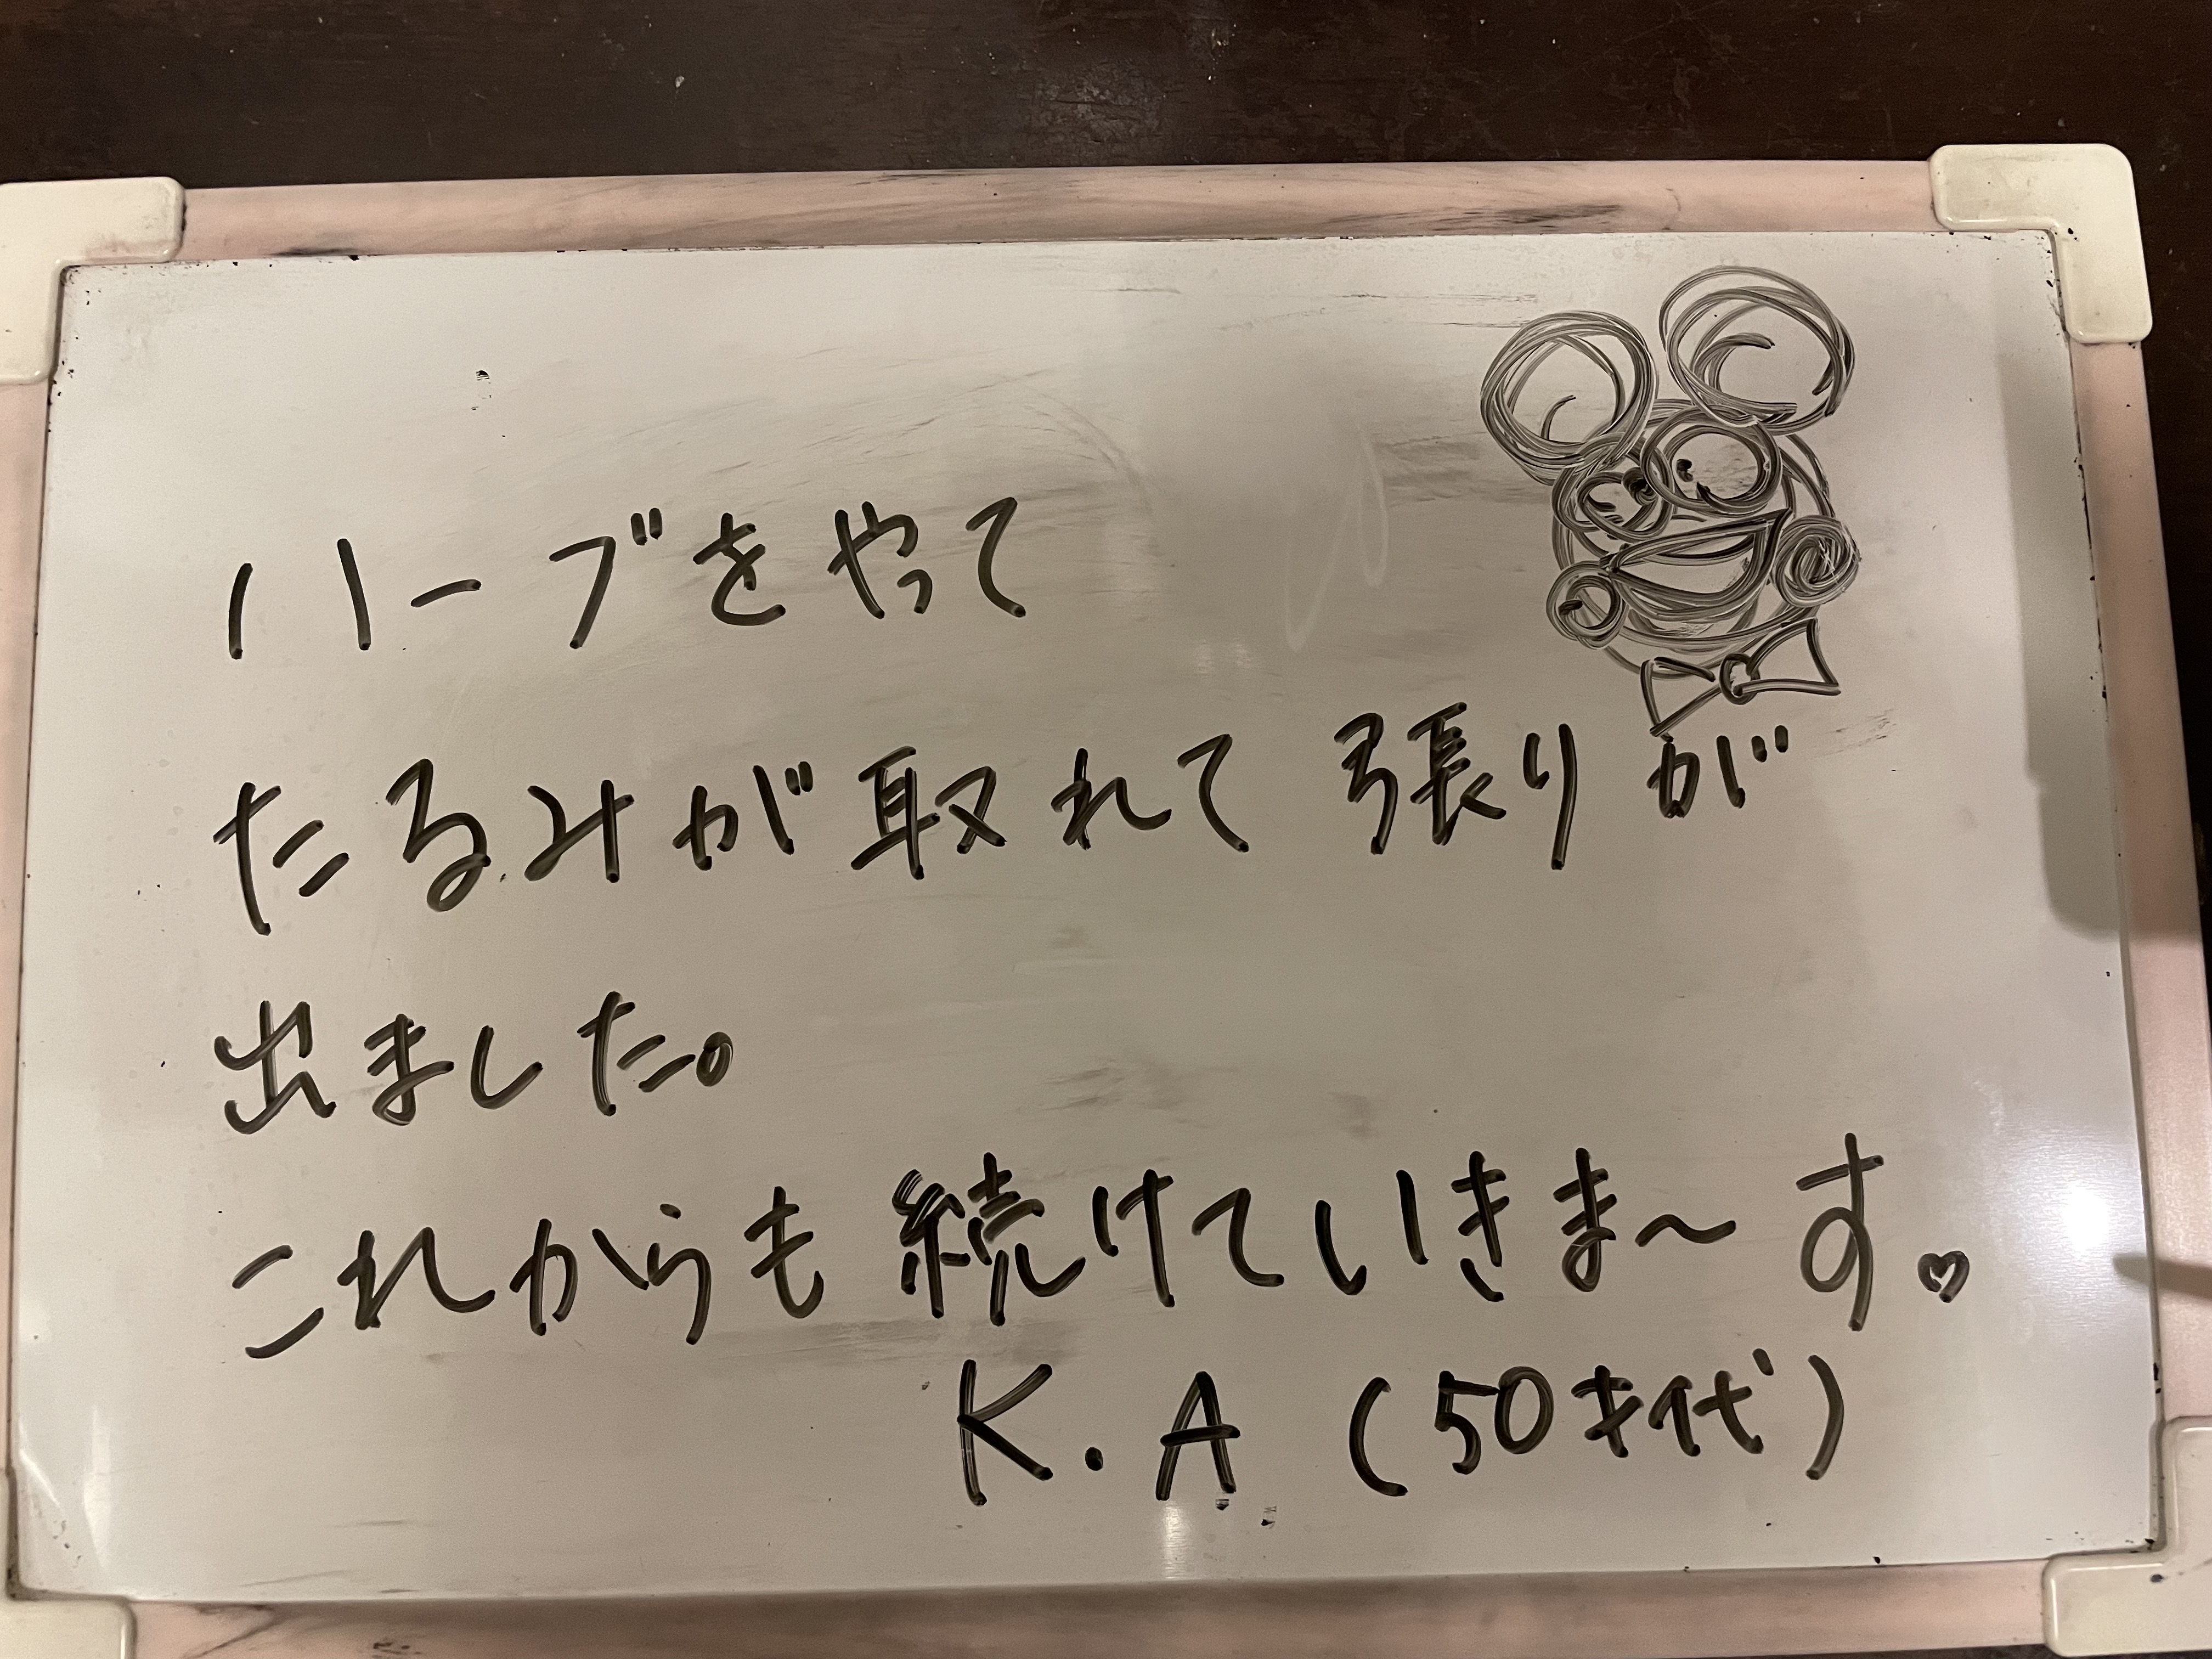 ハーブをやって
たるみが取れて張りが
出ました。
これからも続けていきま〜す。♡
K.A（50才代）